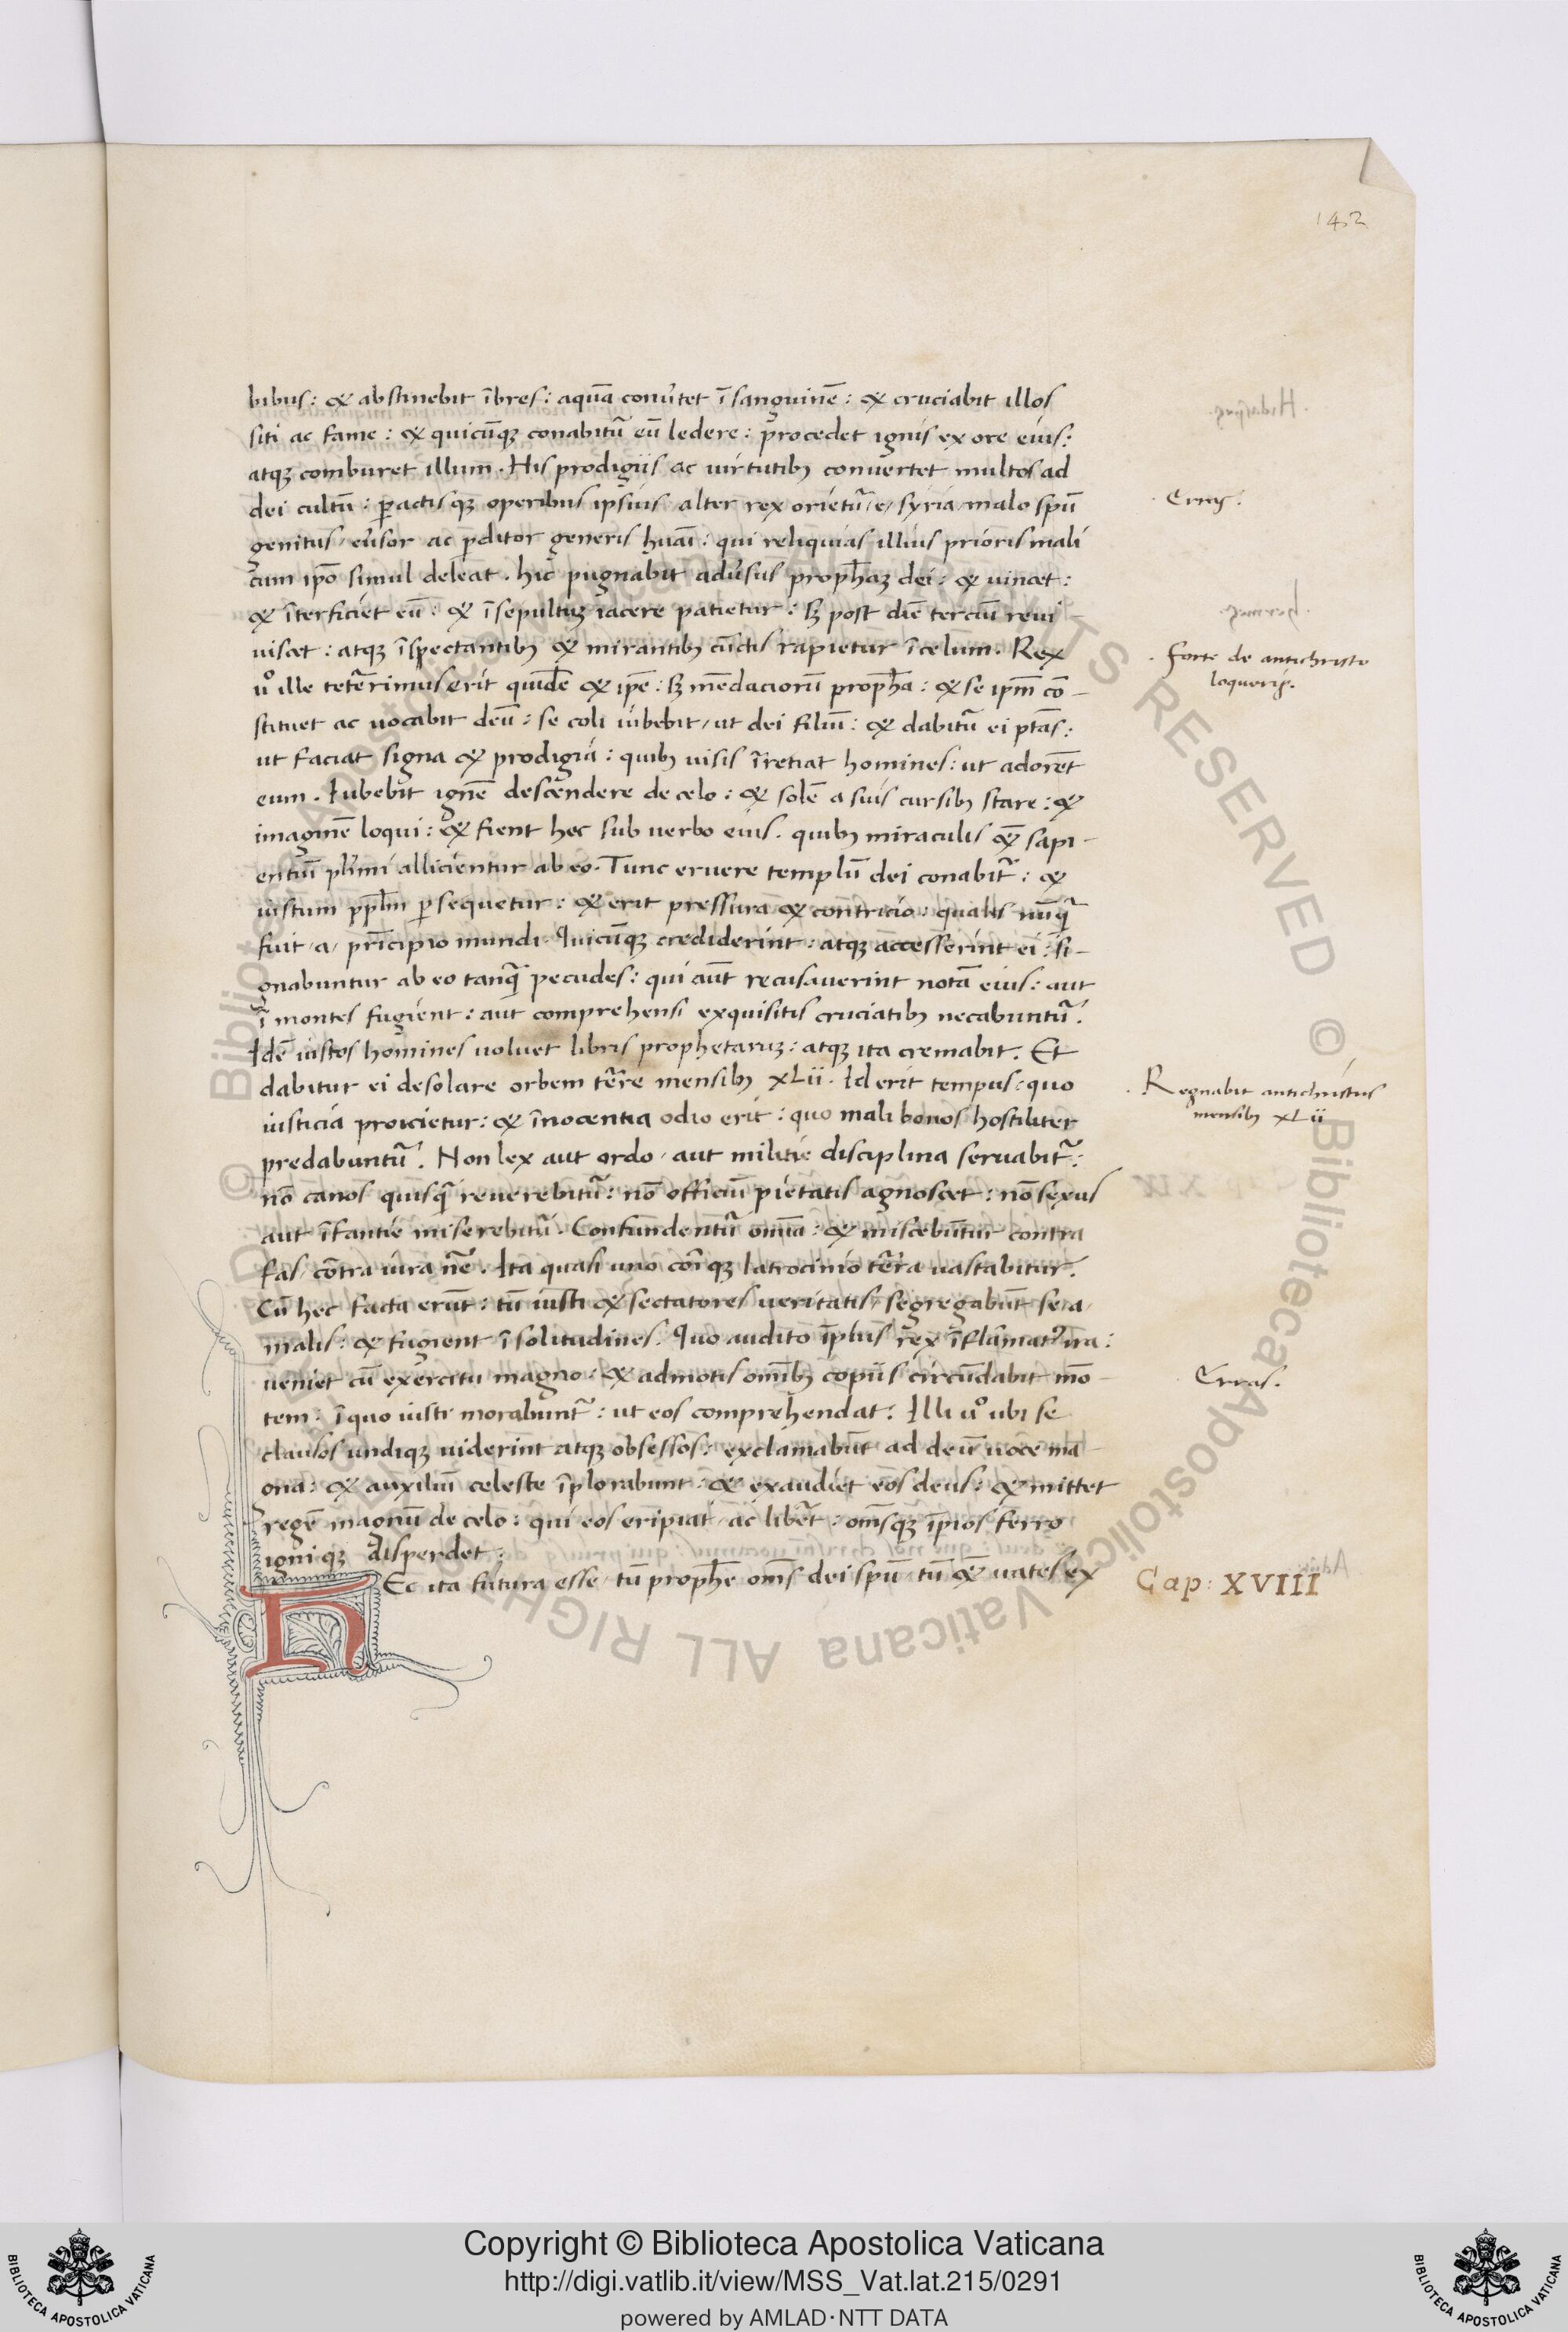 142
bibus: & abstinebit ībres: aquā conūtet ī sanguinē: & cruciabit illos
siti ac fame: & quicūqꝫ conabitũ eũ ledere: procedet ignis ex ore eius:
atqꝫ comburet illum. His prodigiis ac uirtutibꝫ convertet multos ad
dei cultũ: ꝑactis qꝫ operibus ipsius / alter rex orietũ / e / syria / malo spũ
genitus / eũsor ac ꝑditor generis hūāi: qui reliquias illius prioris mali
cum ipō simul deleat. hic pugnabit adũsus prophaꝫ dei: & uincet:
& īterficiet eũ: & ī sepultuꝫ iacere patietur: sꝫ post diē terciũ revi-
viscet: atqꝫ īspectantibꝫ & mirantibꝫ cũctis rapietur ī celum. Rex
ũo ille tetērrimus erit quidē & ipē: sꝫ mēdaciorũ propħa: & se ipm̄ cō-
stituet ac uocabit deũ: se coli iubebit / ut dei filiũ: & dabitũ ei ptās:
ut faciat signa & prodigia: quibꝫ uisis īretiat homines: ut adorēt
eum. Iubebit ignē descendere de celo: & solē a suis cursibꝫ stare: &
imaginē loqui: & fient hec sub verbo eius. quibꝫ miraculis &̄ sapi-
entiũ plīmi allicientur ab eo. Tunc eruere templũ dei conabit̃: &
iustum ppl̄m ꝑsequetur: & erit pressura & contricio: qualis nũq̃
fuit / a / prīcipio mundi. Quicũqꝫ crediderint: atqꝫ accesserint ei: si-
gnabuntur ab eo tanq̃ pecudes: qui aũt recusaverint notā eius: aut
ī montes fugient: aut comprehensi exquisitis cruciatibꝫ necabuntũ.
Idē iustos homines uoluet libris prophetaruꝫ: atqꝫ ita cremabit. Et
dabitur ei desolare orbem tēre mensibꝫ xLii. Id erit tempus: quo
iusticia proicietur: & īnocentia odio erit: quo mali bonos hostiliter
predabuntũ. Non lex aut ordo / aut militie disciplina servabit̃:
nō canos quisq̃ reverebitũ: nō officiũ pietatis agnoscet: nō sexus
aut īfantie miserebitũ. Confundentũ omīa: & miscebũtur contra
fas / cōtra iura nē. Ita quasi uno cōiqꝫ latrocinio tēra uastabitur.
Cũ hec facta erũt: tũ iusti & sectatores veritatis / segregabũt se / a /
malis: & fugient ī solitudines. Quo audito īpius rex īflāmatꝰ ira:
veniet cũ exercitu magno: & admotis omībꝫ copiis circũdabit mō-
tem: ī quo iusti morabunt̃: ut eos comprehendat. Illi ũo ubi se
clausos undiqꝫ viderint atqꝫ obsessos: exclamabũt ad deũ uoce ma-
gna: & auxiliũ celeste īplorabunt: & exaudiet eos deus: & mittet
regē magnũ de celo: qui eos eripiat / ac libēt: om̄sqꝫ īpios ferro
igniqꝫ disperdet:
HEc ita futura esse / tũ prophē om̄s dei spũ / tũ &̄ uates ex
Erras.
Forte de antichristo
loqueris.
Regnabit antichristus
mensibꝫ xLii
Erras.
Cap: XVIII
Copyright © Biblioteca Apostolica Vaticana
http://digi.vatlib.it/view/MSS_Vat.lat.215/0291
powered by AMLAD·NTT DATA
BIBLIOTECA APOSTOLICA VATICANA
BIBLIOTECA APOSTOLICA VATICANA